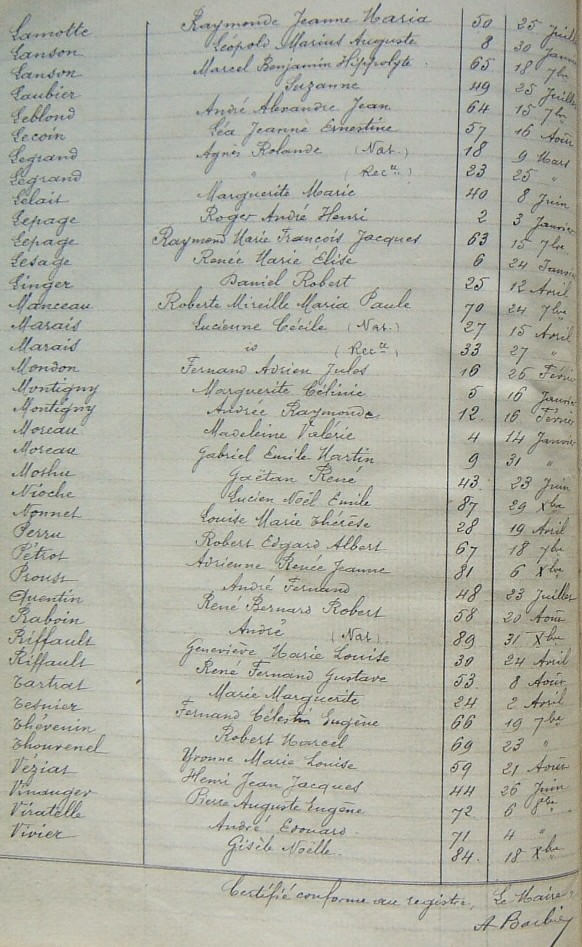 Lamotte Raymonde Jeanne Maria 50 25 Juillet
Lanson Léopold Marius Auguste 8 30 Janvier
Lanson Marcel Benjamin Hippolyte 65 18 7bre
Laubier Suzanne 49 25 Juillet
Leblond André Alexandre Jean 64 15 7bre
Lecoin Léa Jeanne Ernestine 57 16 Août
Legrand Agnès Rolande (Nat.) 18 9 Mars
Legrand " (Recte) 23 25 "
Lélait Marguerite Marie 40 8 Juin
Lepage Roger André Henri 2 3 Janvier
Lepage Raymond Marie François Jacques 63 15 7bre
Lesage Renée Marie Elise 6 24 Janvier
Linger Daniel Robert 25 12 Avril
Manceau Roberte Mireille Maria Paule 70 24 7bre
Marais Lucienne Cécile (Nat.) 27 15 Avril
Marais id (Recte) 33 27 "
Mondon Fernand Adrien Jules 16 26 Février
Montigny Marguerite Célinie 5 16 Janvier
Montigny Andrée Raymonde 12. 16 Février
Moreau Madeleine Valérie 4 14 Janvier
Moreau Gabriel Emile Martin 9 31 "
Moshu Gaëtan René 43. 23 Juin
Nioche Lucien Noël Emile 87 29 Xbre
Nonnet Louise Marie Thérèse 28 19 Avril
Perru Robert Edgard Albert 67 18 7bre
Pétrot Adrienne Renée Jeanne 81 6 Xbre
Proust André Fernand 48 23 Juillet
Quentin René Bernard Robert 58 20 Août
Raboin André (Nat) 89 31 Xbre
Riffault Geneviève Marie Louise 30 24 Avril
Riffault René Fernand Gustave 53. 8 Août
Tartrat Marie Marguerite 24 2 Avril
Tesnier Fernand Célestin Eugène 66 19 7bre
Thévenin Robert Marcel 69 23 "
Thouvenel Yvonne Marie Louise 59 21 Août
Véziat Henri Jean Jacques 44 26 Juin
Vinauger Pierre Auguste Eugène 72. 6 8bre
Viratelle André Edouard 71 4 "
Vivier Gisèle Noëlle 84. 18 Xbre
Certifié conforme au registre, Le Maire
A Barbier